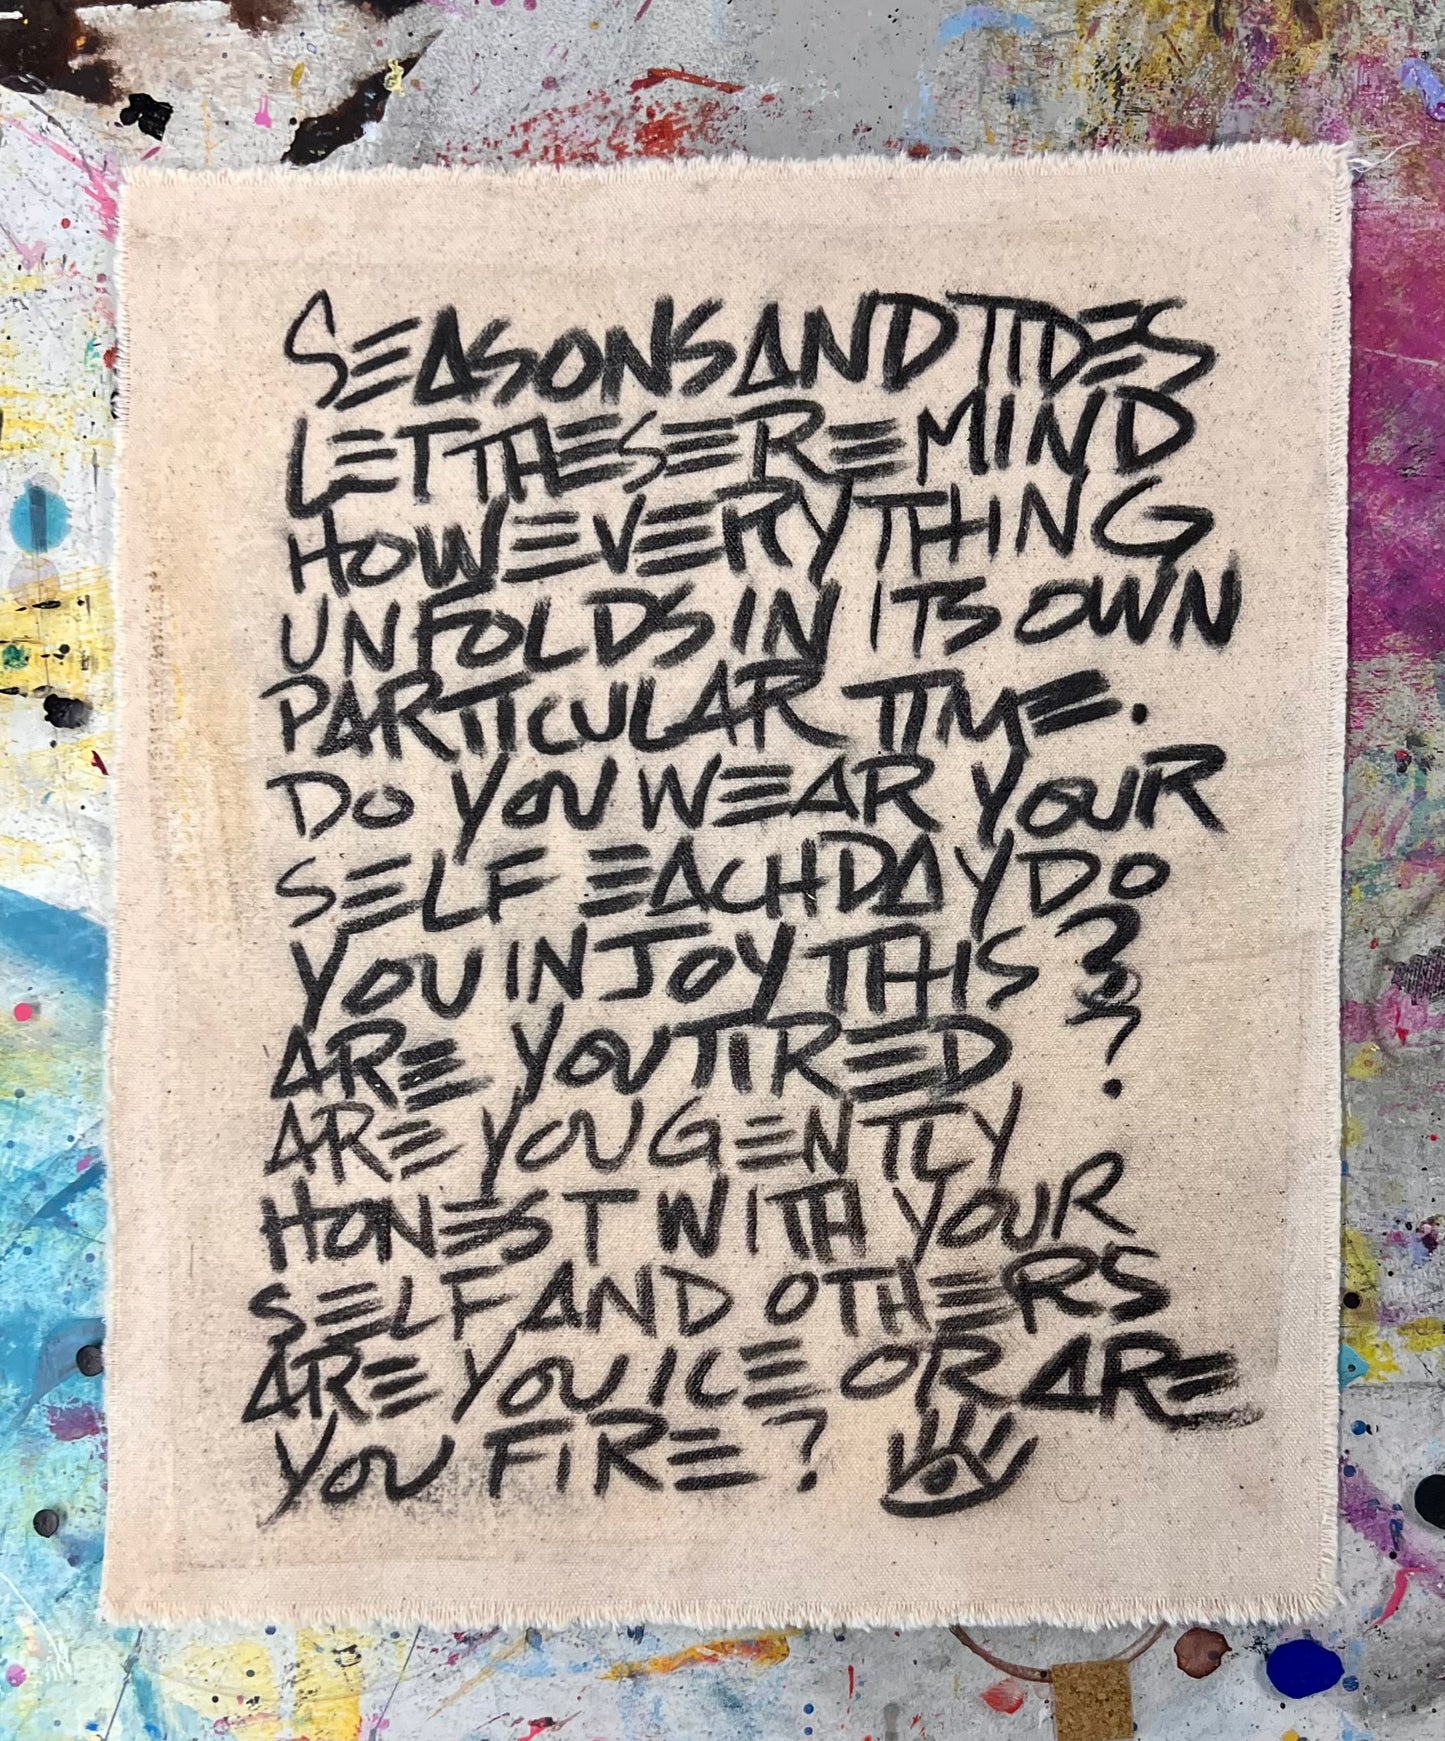 SEASONS AND TIDES
LET THESE REMIND
HOW EVERYTHING
UNFOLDS IN ITS OWN
PARTICULAR TIME.
DO YOU WEAR YOUR
SELF EACH DAY DO
YOU INJOY THIS ?
ARE YOU TIRED ?
ARE YOU GENTLY
HONEST WITH YOUR
SELF AND OTHERS
ARE YOU ICE OR ARE
YOU FIRE?